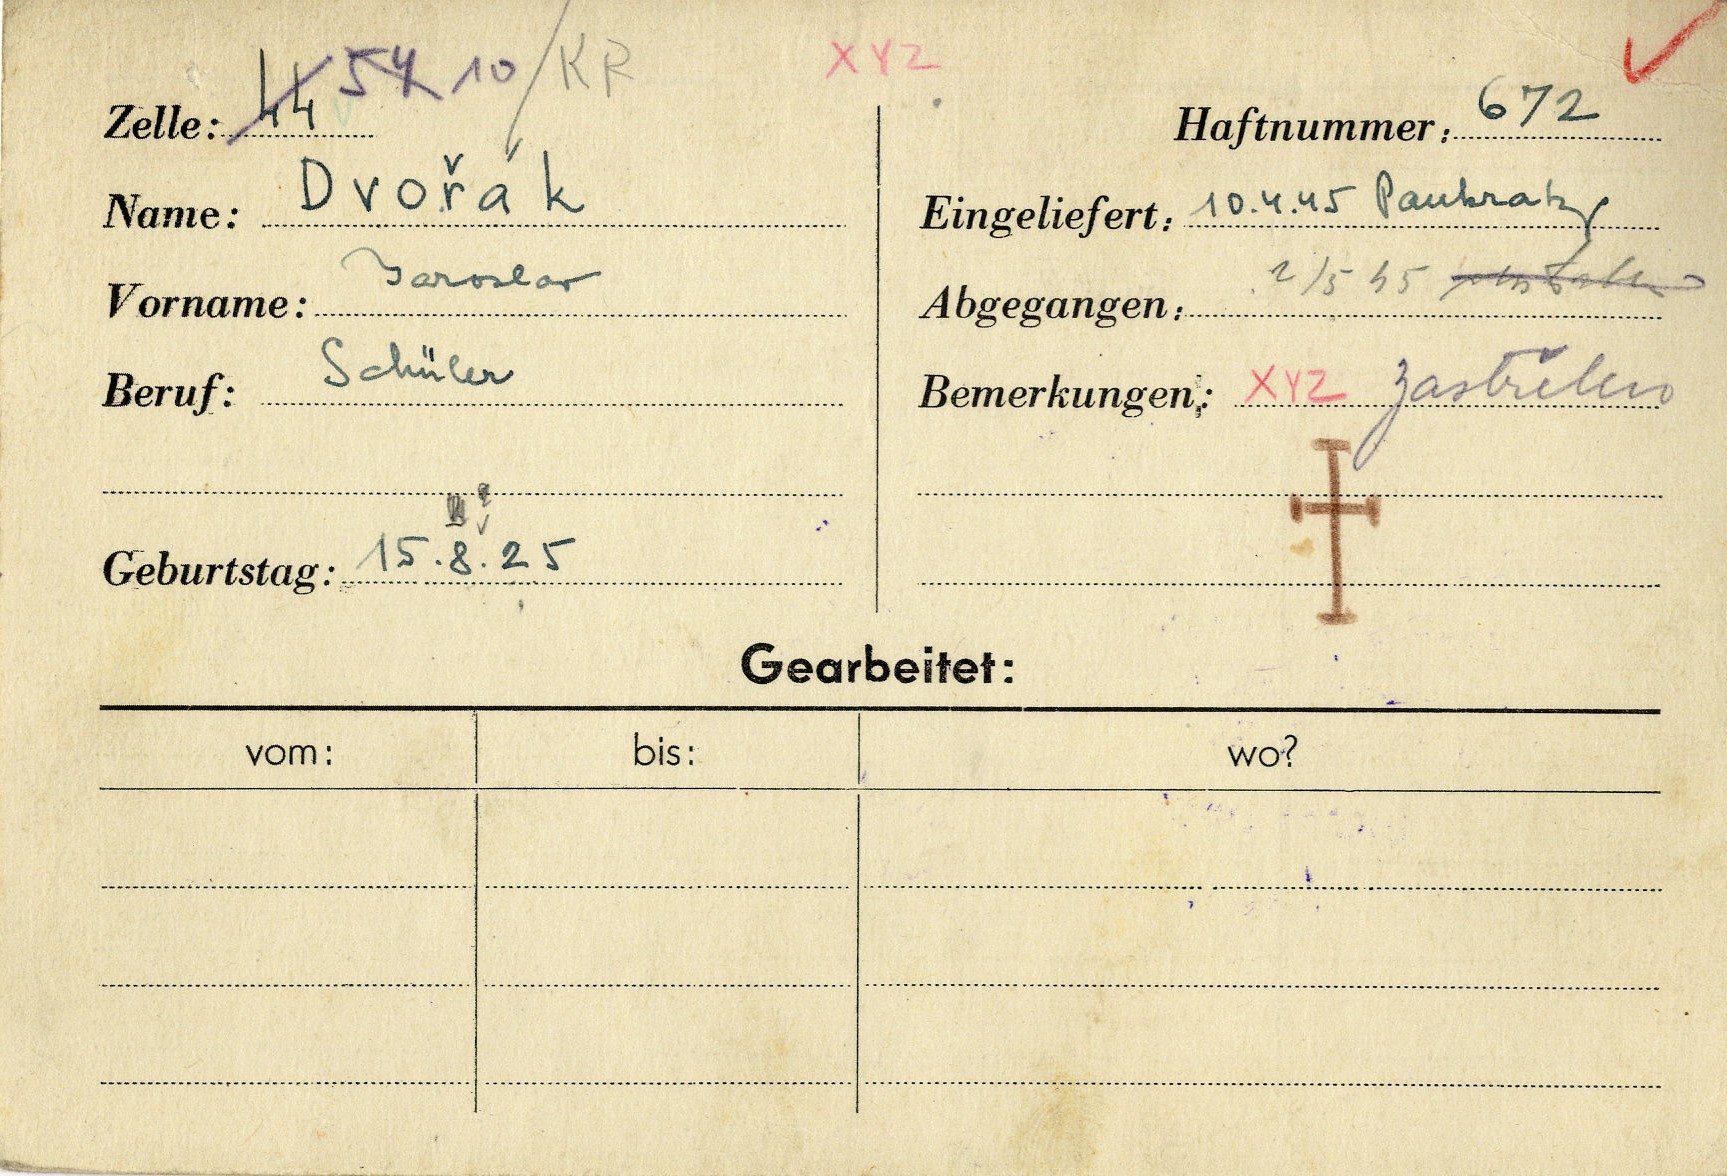 44 54 10 / KR XYZ
Zelle:
Haftnummer: 672
Name: Dvořák
Eingeliefert: 10.4.45 Pankratz
Vorname: Jaroslav
Abgegangen: 2/5 45
Beruf: Schüler
Bemerkungen: XYZ zastřelen
Geburtstag: 15.8.25
Gearbeitet:
vom: bis: wo?